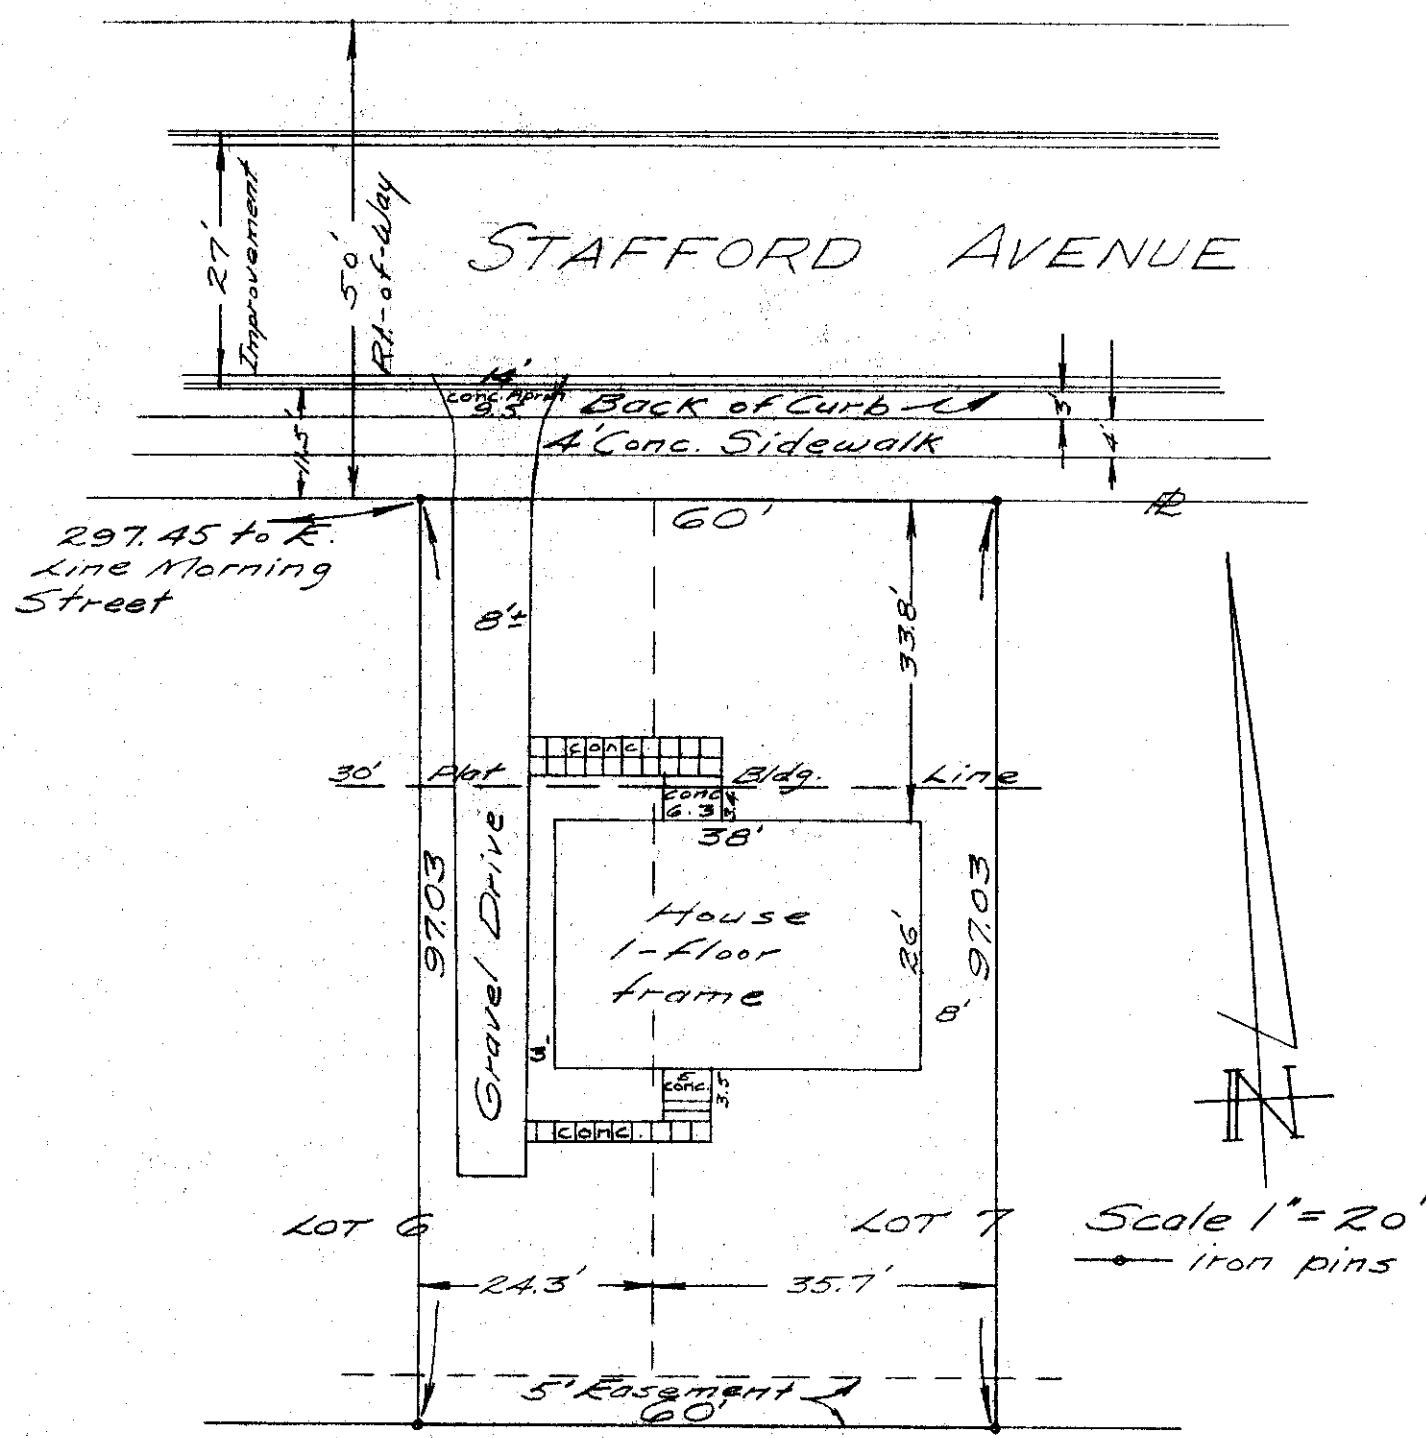 27'
Improvement
50'
Rt.-of-Way
STAFFORD AVENUE
14'
conc. Apron
9.5
Back of Curb
3'
4' Conc. Sidewalk
4'
11.5'
60'
PL
297.45 to E.
Line Morning
Street
8'±
33.8'
conc.
30' Plat Bldg. Line
conc
6.3
3.4
38'
97.03
Gravel Drive
House
1-Floor
frame
26'
97.03
8'
5
conc.
3.5
conc.
N
LOT 6
LOT 7
Scale 1" = 20'
iron pins
24.3'
35.7'
5' Easement
60'